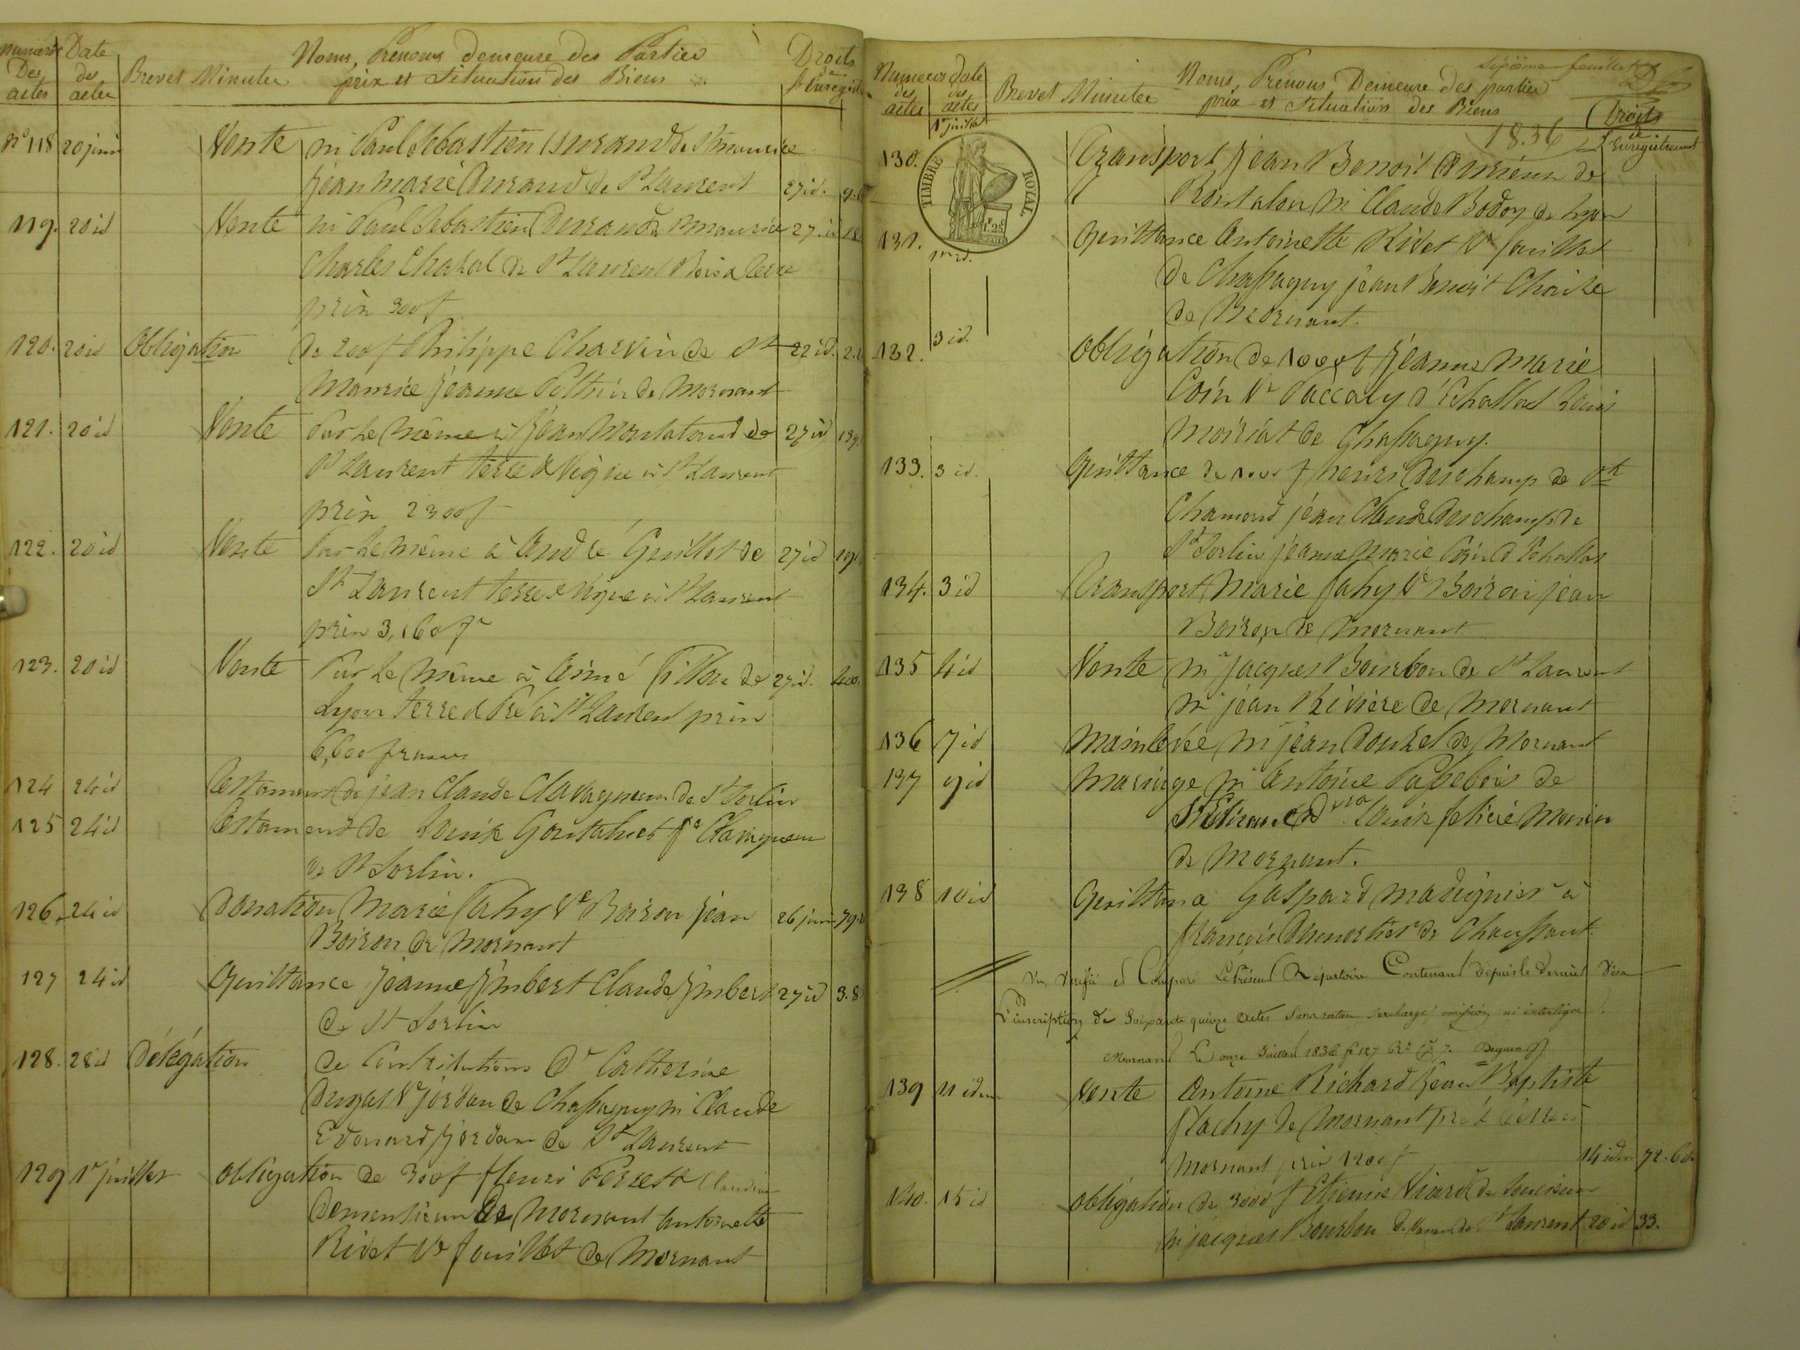 Numéros Des actes
Date des actes
Brevet Minutes
Noms, Prénoms demeure des Parties
prix et Situation des Biens
Droits
d'Enregist
n° 118 20 juin Vente Mr Paul Sébastien Durand de St Maurice
Jean Marie Durand de St Laurent 27 id.
119. 20 id Vente Mr Paul Sébastien Durand de St Maurice 27 id
Charles Chazal de St Laurent Bois à
prix 300 f
120. 20 id Obligation de 200 f Philippe Charvin de St 22 id. 2.
Maurice Jeanne Pothin de Mornant
121. 20 id Vente Par le même à Jean Montaland de 27 id
St Laurent terre & Vigne à St Laurent
prix 2300 f
122. 20 id Vente Par le même à André Guillot de 27 id
St Laurent terre & Vigne à St Laurent
prix 3,160 fr
123. 20 id Vente Par le même à Aimé Fillon de 27 id.
Lyon terre & Pré à St Laurent prix
6,600 francs
124 24 id Testament de jean Claude Clavagneux de St Sorlin
125 24 id Testament de Louise Goutalier fe Clavagneux
de St Sorlin.
126. 24 id Donation Marie Fahy Ve Boiron Jean 26 juin
Boiron de Mornant
127 24 id Quittance Jeanne Jimbert Claude Jimbert 27 id 3.8
de St Sorlin
128. 28 id Délégation de Contributions De Catherine
Dugas Ve Jordan de Chassagny Mr Claude
Edouard Jordan de St Laurent
129 1er juillet Obligation de 300 f fleuri Perret Claudine
de Mornant Antoinette
Rivet Ve fouillet de Mornant
Numéros des actes
date des actes
Brevet Minutes
Noms, Prénoms Demeure des parties
prix et Situation des Biens
Sixième feuillet
1836
Droits
d'Enregistrement
TIMBRE ROYAL.
1 F. 25
130. 1er juillet Transport Jean Benoit de
Rontalon Mr Claude Bodoy de Lyon
131. 1er id. Quittance Antoinette Rivet Ve fouillet
de Chassagny jean Benoit Chaize
de Mornant.
132. 3 id. Obligation de 1000 f Jeanne Marie
Coin Ve Paccaly d'Echallas Louis
Moiriat de Chassagny.
133. 3 id. Quittance de 1000 f henri Deschamps de St
Chamond jean Claude Deschamps de
St Sorlin jeanne Marie Coin d'Echallas
134. 3 id Transport Marie Fahy Ve Boiron jean
Boiron de Mornant
135 4 id Vente Mr jacques Bourbon de St Laurent
Mr jean Rivière de Mornant
136 7 id Mainlevée Mr jean Douzel de Mornant
137 9 id Mariage Mr Antoine de
St Etienne & Dlle Louise félicie Monin
de Mornant.
138 10 id Quittance Gaspard Madignier à
françois Dumortier de Chaussant
Vu, Vérifié et Comparé Le Présent Répertoire Contenant depuis le dernier Visa
L'inscription de Soixante quinze actes Sans rature surcharge omission ni interligne.
Mornant Le onze Juillet 1836
139 11 idem Vente Antoine Richard Jean Baptiste
flachy de Mornant pré & terre à
Mornant prix 1200 f 14 idem 72.60
140. 15 id Obligation de 3000 f Etienne Viard de
Mr jacques Bourbon de St Laurent 20 id 33.